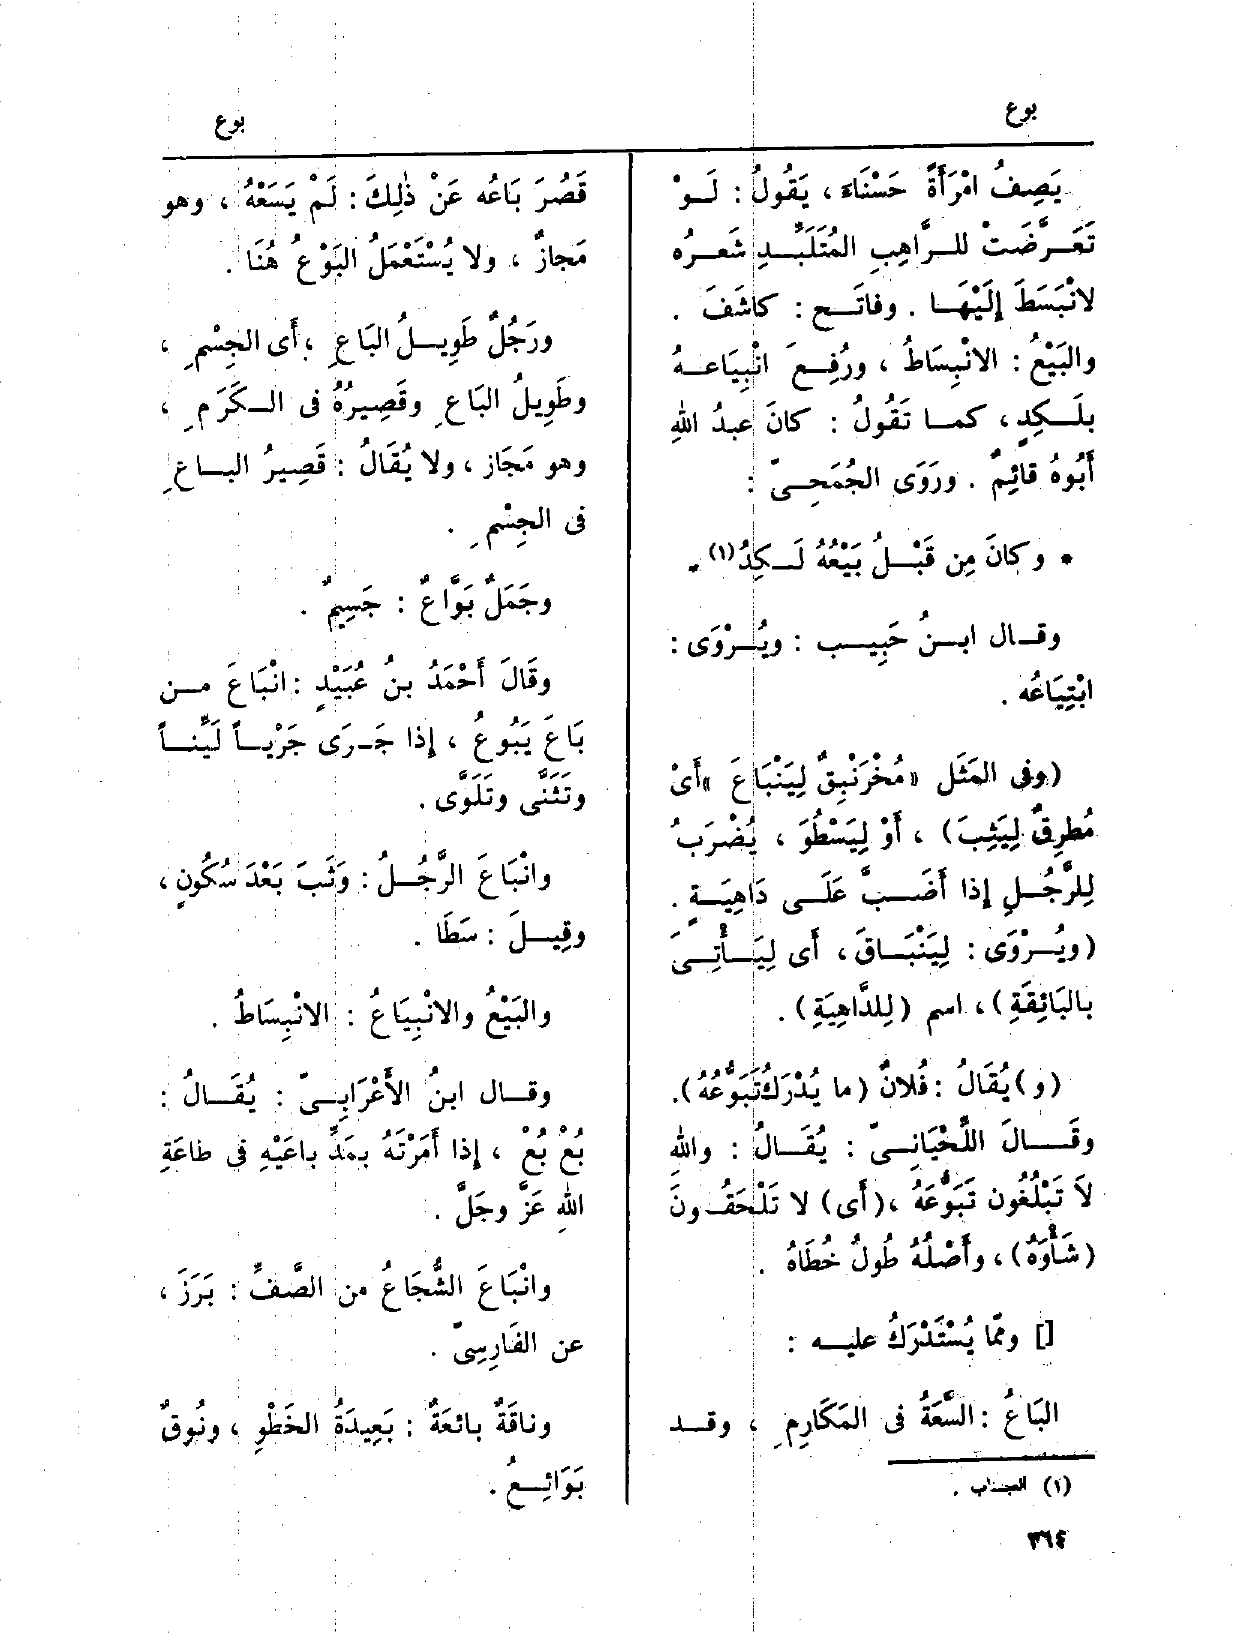 بوع
بوع
يَصِفُ امْرَأَةً حَسْنَاءَ ، يَقُولُ : لَوْ
تَعَرَّضَتْ للرَّاهِبِ المُتَلَبِّدِ شَعرُه
لانْبَسَطَ إِلَيْهَا . وفاتَح : كاشَفَ .
والبَيْعُ : الانْبِسَاطُ ، ورُفِعَ انْبِيَاعهُ
بلَكِدٍ ، كما تَقُولُ : كانَ عبدُ اللهِ
أَبُوهُ قائِمٌ . ورَوَى الجُمَحِىّ :
* وكانَ مِن قَبْلُ بَيْعُهُ لَكِدُ (١) .
وقال ابنُ حَبِيب : ويُرْوَى :
ابْتِيَاعُه .
(وفى المَثَل «مُخْرَنْبِقٌ لِيَنْبَاعَ » أَىْ
مُطرِقٌ لِيَثِبَ) ، أَوْ لِيَسْطُوَ ، يُضْرَبُ
لِلرَّجُلِ إذا أَضَبَّ عَلَى دَاهِيَةٍ .
(ويُرْوَى : لِيَنْبَاقَ ، أَى لِيَأْتِىَ
بالبَائِقَةِ ) ، اسم (لِلدَّاهِيَةِ) .
(و) يُقَالُ : فُلانٌ (ما يُدْرَكُ تَبَوُّعُهُ).
وقَالَ اللِّحْيَانِىّ : يُقَالُ : واللهِ
لاَ تَبْلُغُون تَبَوُّعَهُ ، (أَى) لا تَلْحَقُونَ
(شَأْوَهُ) ، وأَصْلُهُ طُولُ خُطَاهُ .
[] وممّا يُسْتَدْرَكُ عليه :
البَاعُ : السَّعَةُ فى المَكَارِمِ ، وقد
(١) العباب .
٣٦٤
قَصُرَ بَاعُه عَنْ ذٰلِكَ : لَمْ يَسَعْهُ ، وهو
مَجازٌ ، ولا يُسْتَعْمَلُ البَوْعُ هُنَا .
ورَجُلٌ طَوِيلُ البَاعِ ، أَى الجِسْمِ ،
وطَوِيلُ البَاعِ وقَصِيرُهُ فى الكَرَمِ ،
وهو مَجَاز ، ولا يُقَالُ : قَصِيرُ الباعِ
فى الجِسْمِ .
وجَمَلٌ بَوَّاعٌ : جَسِيمٌ .
وقَالَ أَحْمَدُ بنُ عُبَيْدٍ : انْبَاعَ من
بَاعَ يَبُوعُ ، إذا جَرَى جَرْياً لَيِّناً
وتَثَنَّى وتَلَوَّى .
وانْبَاعَ الرَّجُلُ : وَثَبَ بَعْدَ سُكُونٍ ،
وقِيلَ : سَطَا .
والبَيْعُ والانْبِيَاعُ : الانْبِسَاطُ .
وقال ابنُ الأَعْرَابِىّ : يُقَالُ :
بُعْ بُعْ ، إذا أَمَرْتَهُ بمَدِّ باعَيْهِ فى طاعَةِ
اللهِ عَزَّ وجَلَّ .
وانْبَاعَ الشُّجَاعُ من الصَّفِّ : بَرَزَ ،
عن الفَارِسِىّ .
وناقَةٌ بائعَةٌ : بَعِيدَةُ الخَطْوِ ، ونُوقٌ
بَوَائِعُ .